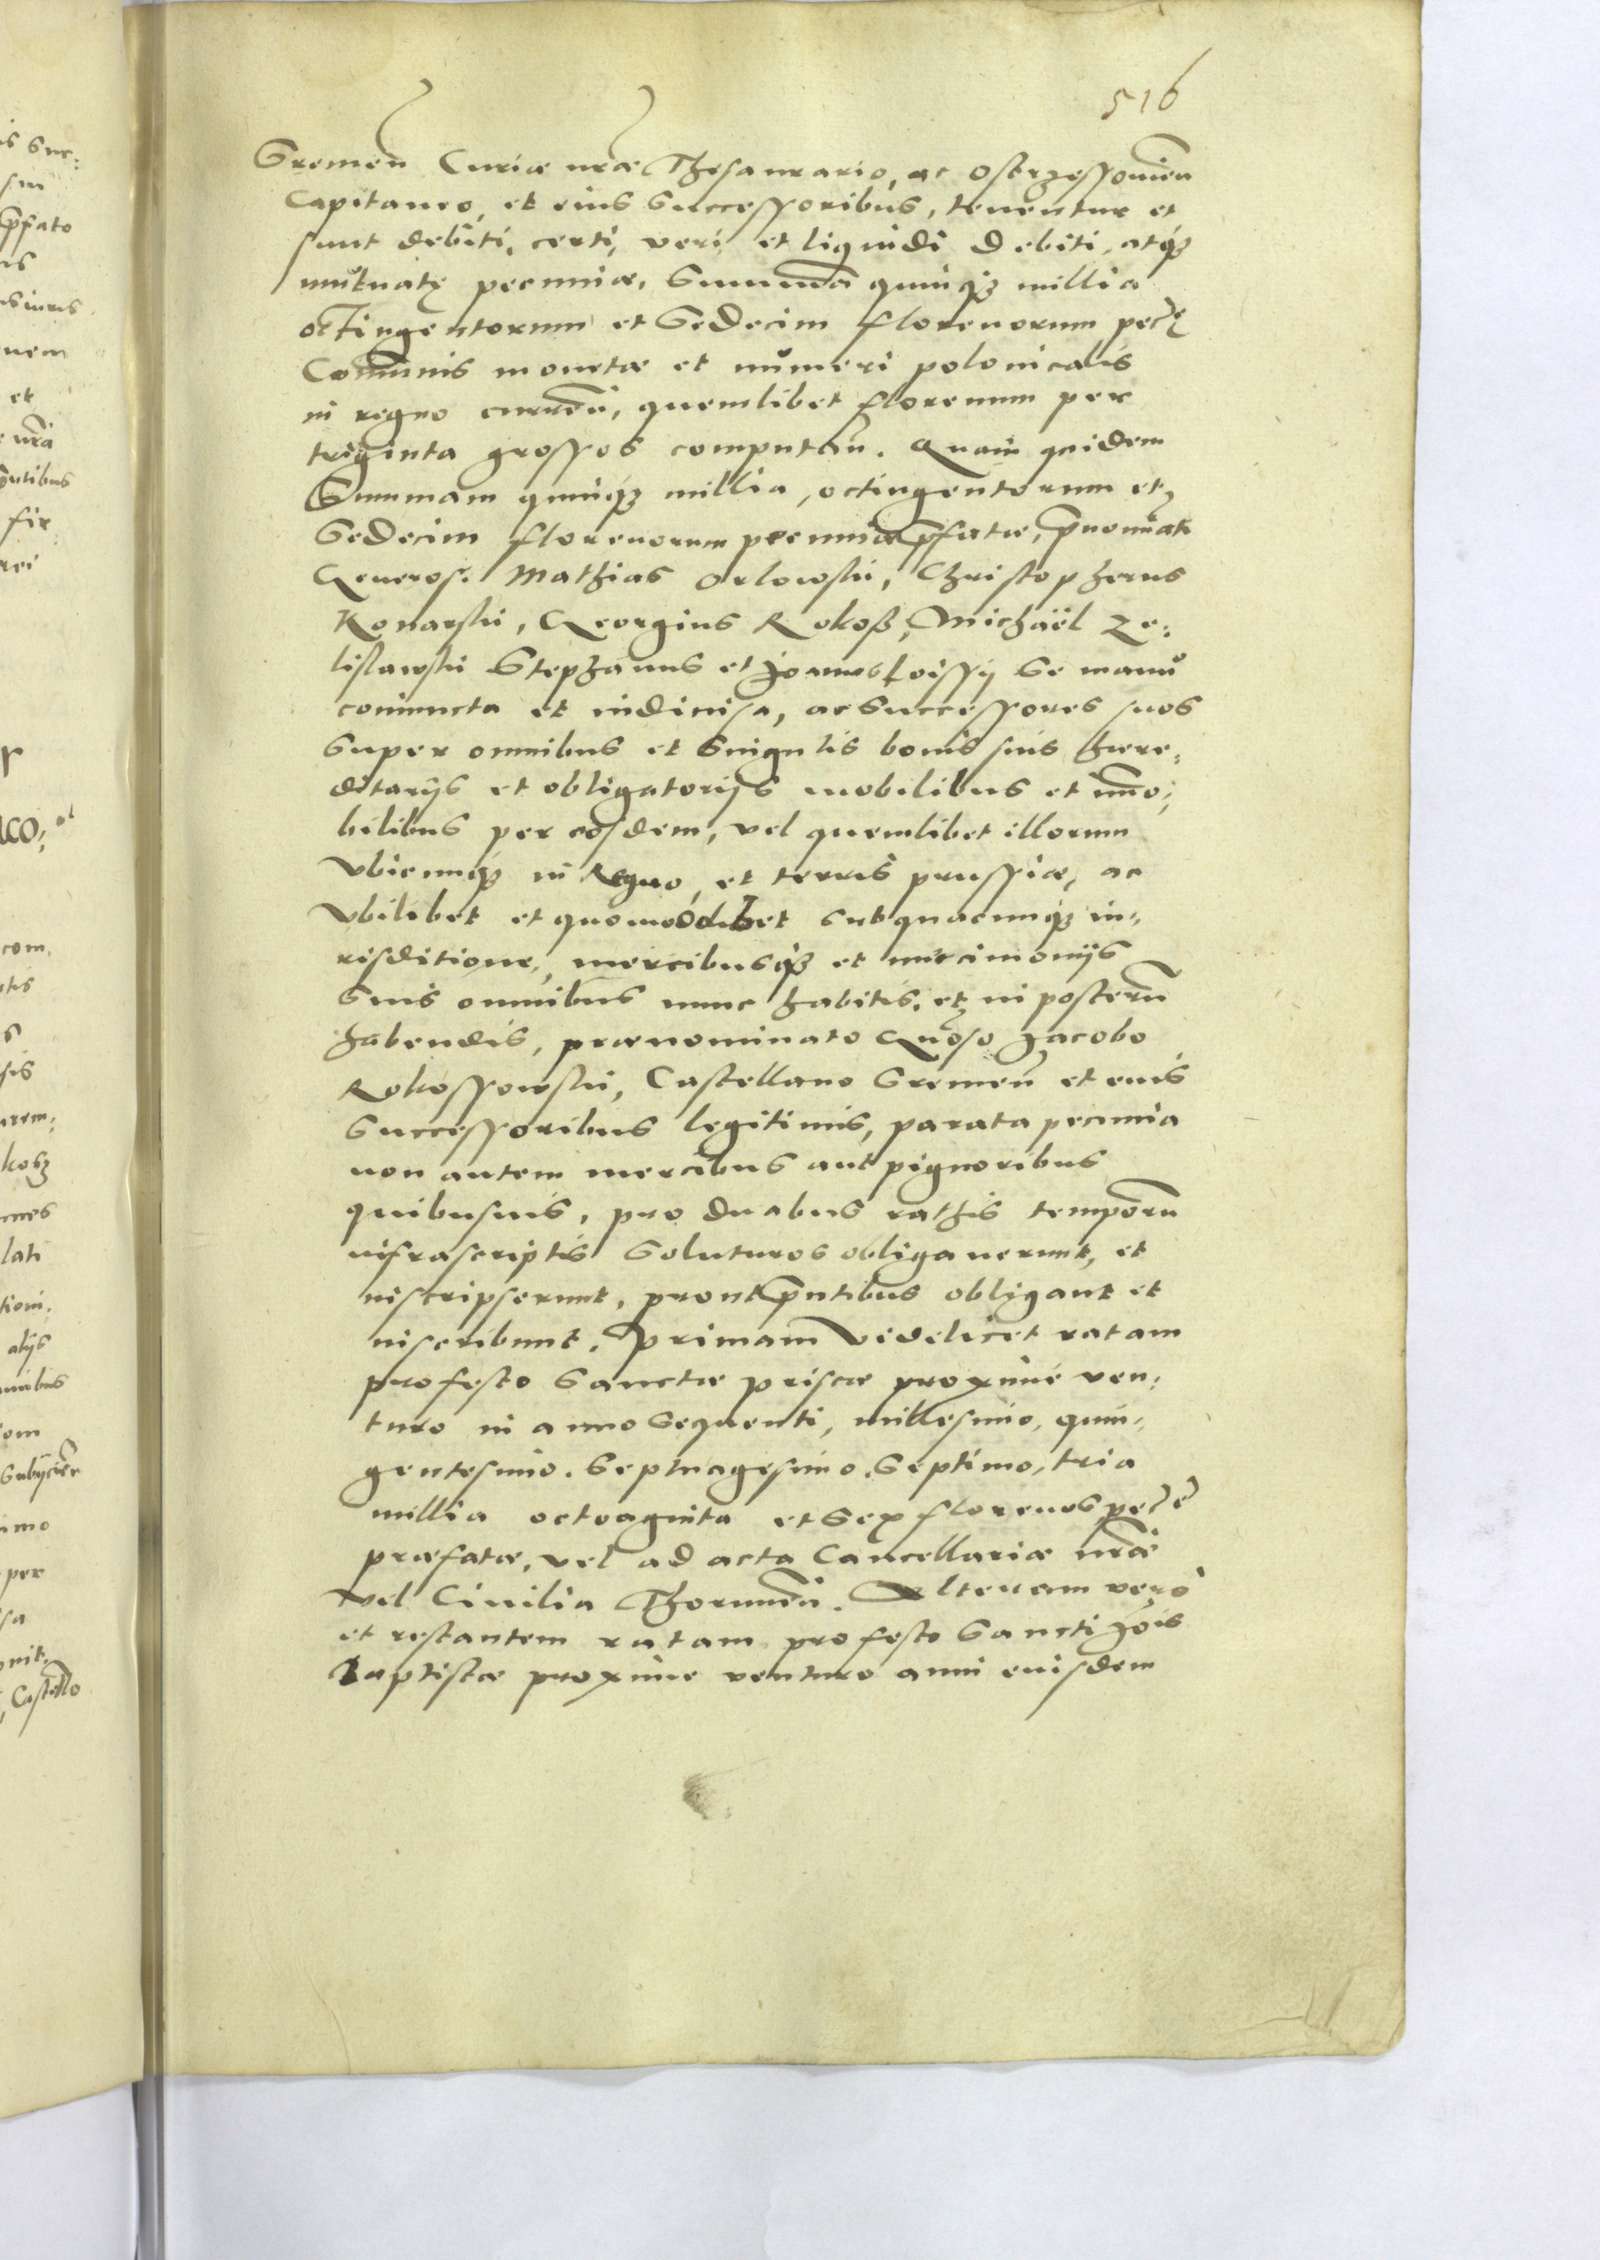 516
Sremen̄ Curiæ nr̄æ Thesaurario, ac Ostrzessouien̄
Capitaneo, et eius Successoribus, tenentur et
sunt debiti, certi, veri, et liquidi Debiti, atq₃
mŭtuatę pecuniæ, Summā quinq₃ millia
octingentorum et Sedecim florenorum pec̄ę
Com̄unis monetæ et nŭmeri polonicalis
in regno curren̄, quemlibet florenum per
triginta grossos computan̄. Quam quidem
Summam quinq₃ millia, octingentorum et
Sedecim florenorum pecuniæ p̄fatæ, p̄nominati
Generosi Mathias Orlowski, Christopherus
Konarski, Georgius Rokoß, Michaël Ze:
lislawski Stephanus et Joannes Loissÿ Se manŭ
coniuncta et indiuisa, ac Successores suos
Super omnibus et Singulis bonis suis hære:
ditarijs et obligatorijs mobilibus et im̄o:
bilibus per eosdem, vel quemlibet illorum
Vbicunq₃ in Regno, et terris prussiæ, ac
Vbilibet et quomodolibet Sub quacunq₃ iu:
risditione, mercibusq₃ et mercimonijs
Suis omnibus nunc habitis, et in posterum̄
habendis, prænominato Gn̄oso Jacobo
Rokossowski, Castellano Sremen̄ et euis
Successoribus legitimis, parata pecunia
non autem mercibus aut pignoribus
quibusuis, pro duabus rathis temporū
infrascriptis Soluturos obligauerunt, et
inscripserunt, prout p̄ntibus obligant et
inscribunt. Primam Videlicet ratam
pro festo Sanctæ Priscæ proximè ven:
turo in anno Sequenti, millesimo, quin:
gentesimo. Septuagesimo. Septimo, tria
millia octoaginta et Sex florenos pec̄ę
præfatæ, vel ad acta Cancellariæ nr̄æ
vel Ciuilia Thorunen̄. Alteram verò
et restantem ratam pro festo Sancti Jōis
Baptistæ proxime venturo anni euisdem